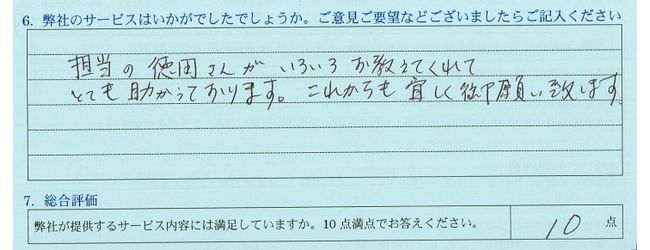 6. 弊社のサービスはいかがでしたでしょうか。ご意見ご要望などございましたらご記入ください
担当の徳田さんがいろいろお教えてくれて
とても助かっております。これからも宜しく御願い致します
7. 総合評価
弊社が提供するサービス内容には満足していますか。10点満点でお答えください。 10 点